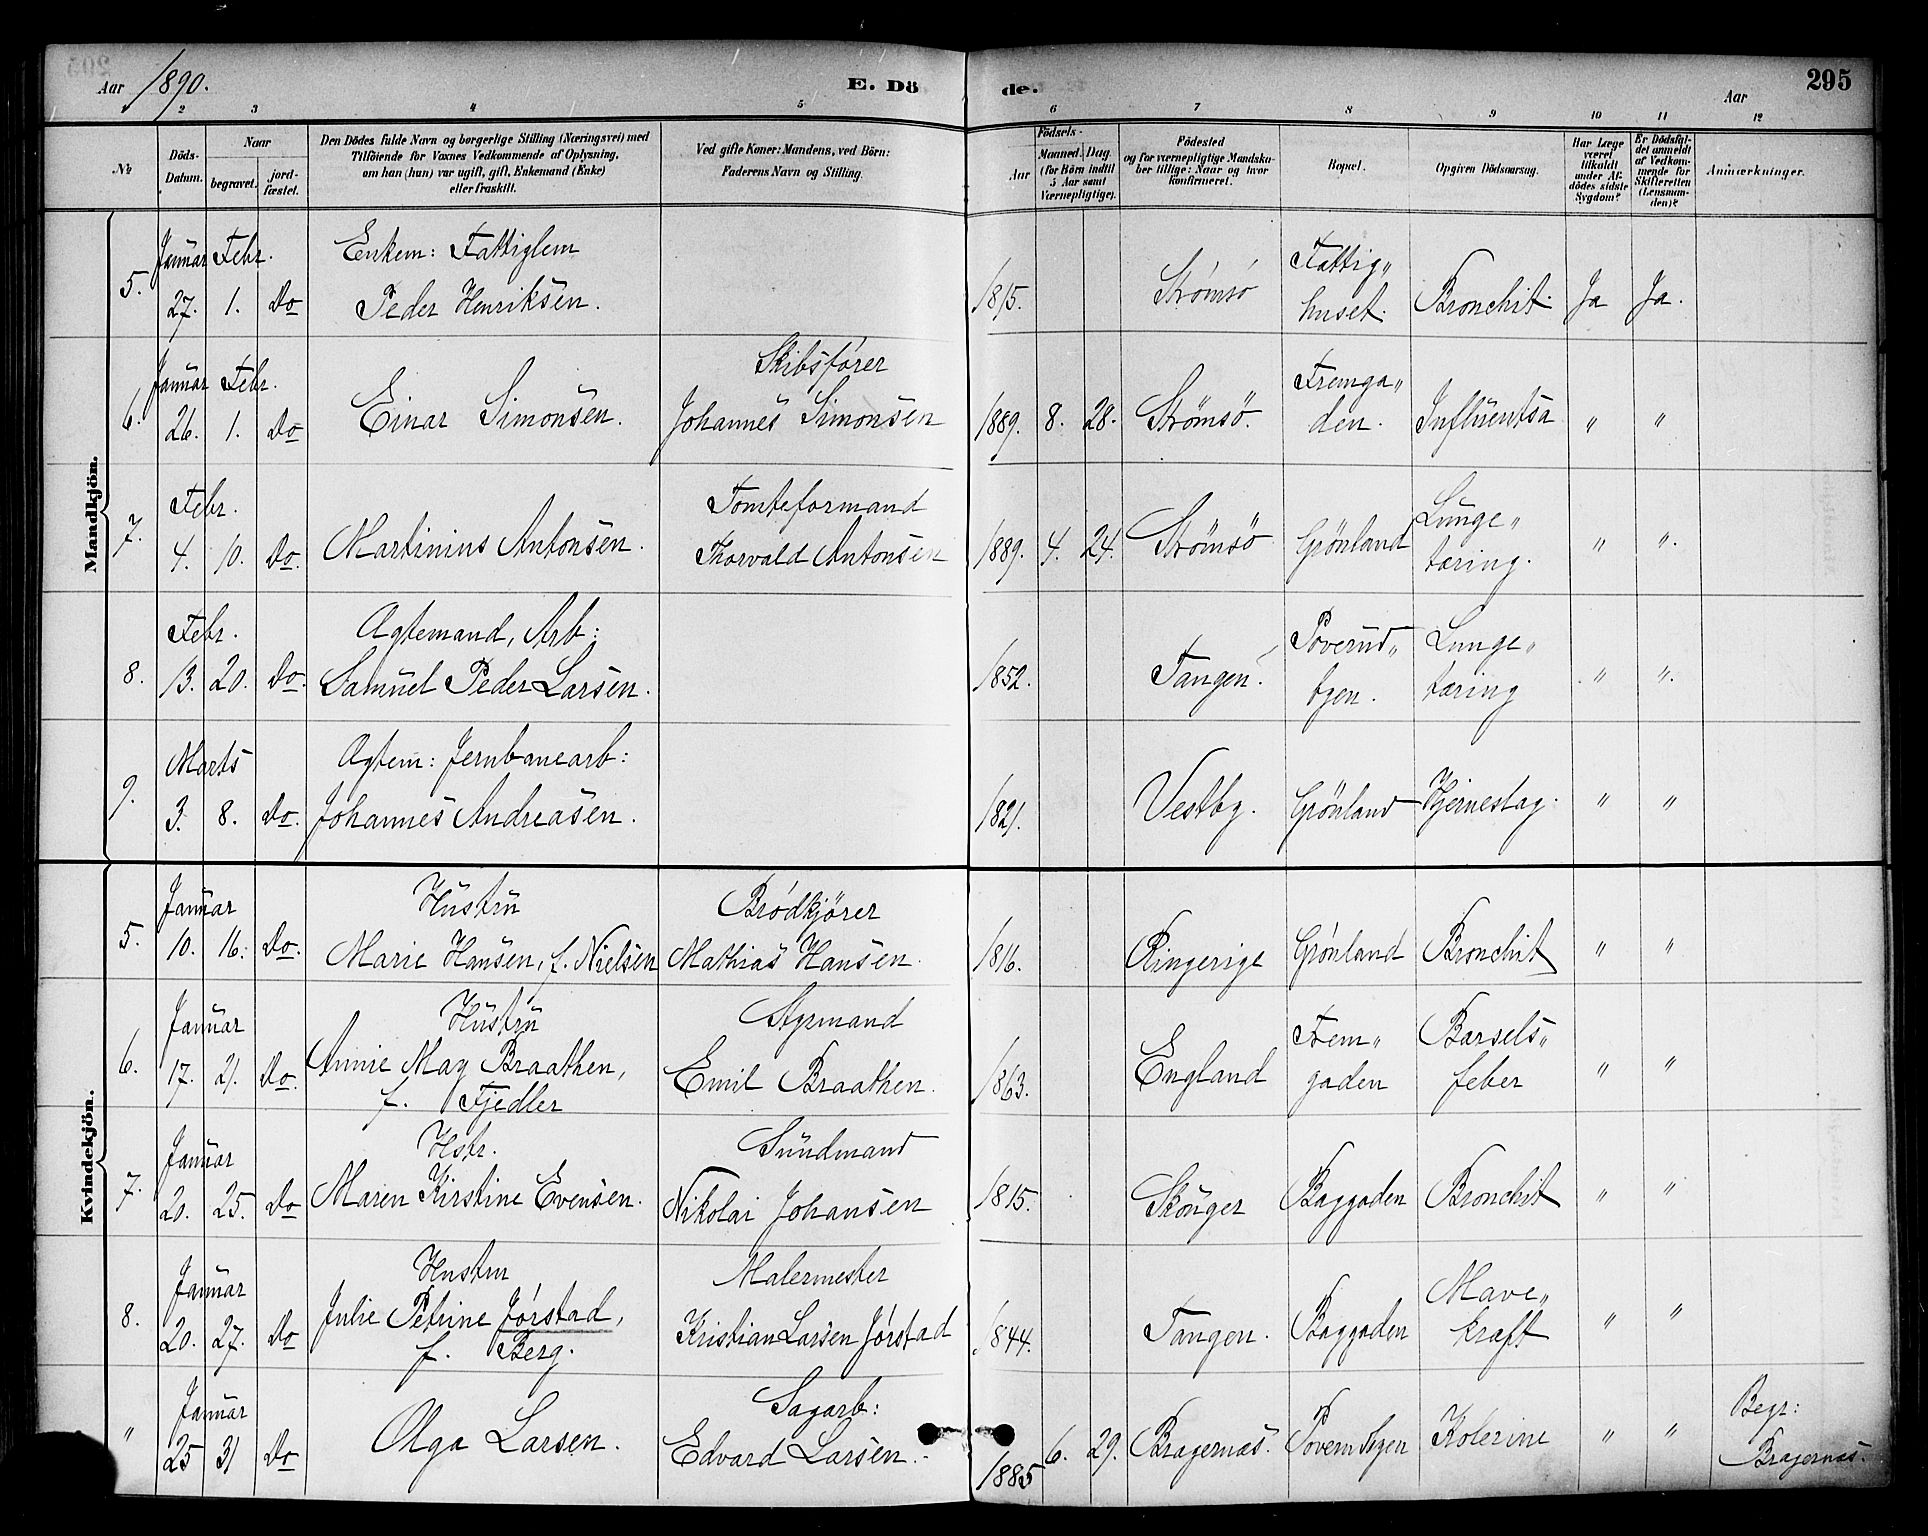 Aar 1890. E. Dö de. Aar 295
1 2 3 4 5 6 7 8 9 10 11 12
No. | Döds-Datum. | Naar begravet. | jordfæstet. | Den Dödes fulde Navn og borgerlige Stilling (Næringsvei) med Tilföiende for Voxnes Vedkommende af Oplysning, om han (hun) var ugift, gift, Enkemand (Enke) eller fraskilt. | Ved gifte Koner: Mandens, ved Börn: Faderens Navn og Stilling. | Födsels- Aar | Maaned. Dag. (for Börn indtil 5 Aar samt Værnepligtige). | Födested og for værnepligtige Mandskaber tillige: Naar og hvor konfirmeret. | Bopæl. | Opgiven Dödsaarsag. | Har Læge været tilkaldt under Afdödes sidste Sygdom? | Er Dödsfaldet anmeldt af Vedkommende for Skifteretten (Lensmanden)? | Anmærkninger.
Mandkjön.
5. | Januar 27. | Febr. 1. | Do | Enkem: Fattiglem Peder Henriksen. | | 1815. | | | Strömsö | Fattig„ huset. | Bronchit. | Ja | Ja.
6. | Januar 26. | Febr. 1. | Do | Einar Simonsen. | Skibsförer Johannes Simonsen | 1889. | 8. | 28. | Strömsö. | Fremga„ den. | Influentsa | „ | „
7. | Febr. 4. | 10. | Do. | Martinius Antonsen. | Tomteformand Thorvald Antonsen | 1889. | 4. | 24. | Strömsö | Grönland | Lunge„ tæring. | „ | „.
8. | Febr. 13. | 20. | Do. | Ægtemand, Arb: Samuel Peder Larsen. | | 1852. | | | Tangen. | Poverud„ byen. | Lunge„ tæring | „ | „.
9. | Marts 3. | 8. | Do. | Ægtem: Jernbanearb: Johannes Andreasen. | | 1821. | | | Vestby. | Grönland | Hjerneslag. | „ | „
Kvindekjön.
5. | Januar 10. | 16. | Do. | Hustru Marie Hansen, f. Nielsen | Brödkjörer Mathias Hansen. | 1816. | | | Ringerige | Grönland | Bronchit | „ | „
6. | Januar 17. | 21. | Do. | Hustru Annie May Braathen, f. Fjedler | Styrmand Emil Braathen. | 1863. | | | England | Frem„ gaden | Barsels„ feber | „ | „
7. | Januar 20. | 25. | Do | Hstr. Maren Kirstine Evensen. | Sundmand Nikolai Johansen | 1815. | | | Skouger | Baggaden | Bronchit | „ | „
8. | Januar 20. | 27. | Do | Hustru Julie Petrine Jörstad, f. Berg. | Malermester Kristian Larsen Jörstad | 1844. | | | Tangen. | Baggaden | Mave„ kræft | „ | „
„ | Januar 25 | 31 | Do | Olga Larsen. | Sagarb: Edvard Larsen. | 1885 | 6. | 29. | Bragernæs. | Poverudbyen | Kolerine | „ | „ | Begr: Bragernæs.